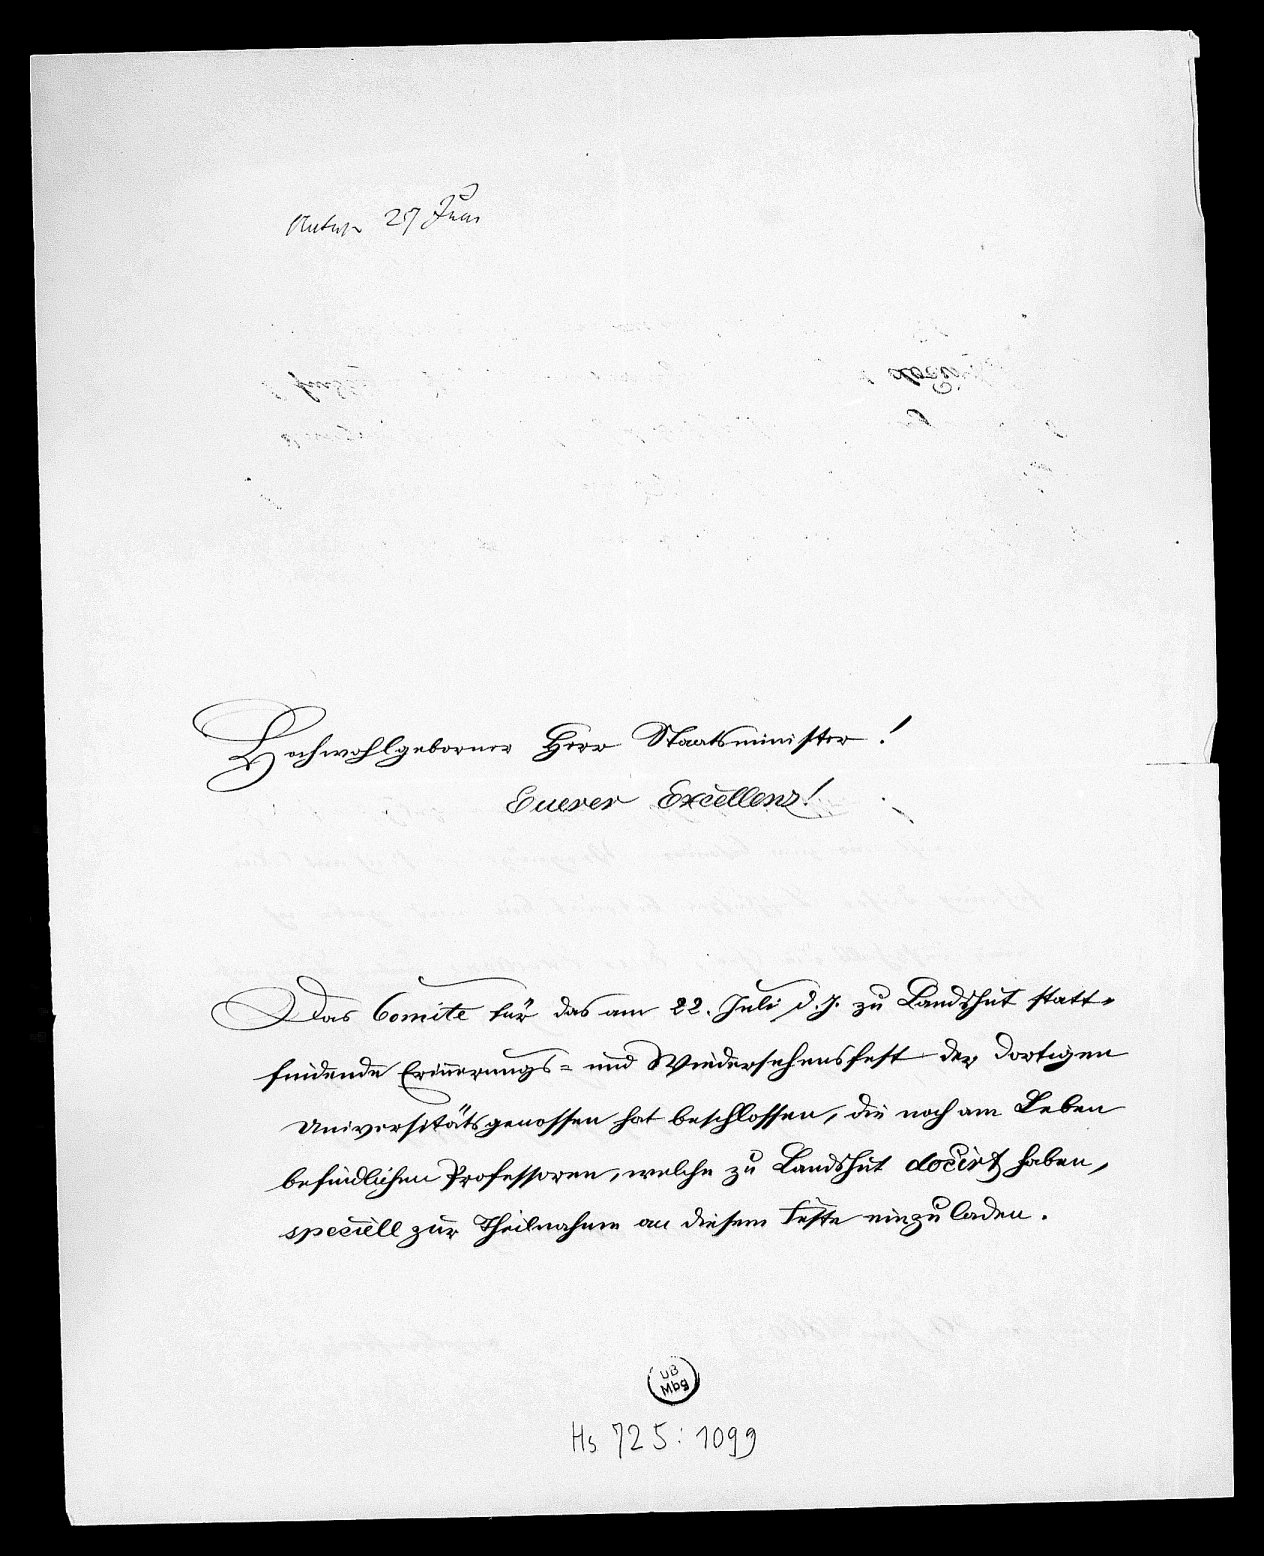 Antw. 27 Juni
Hochwohlgeborner Herr Staatsminister!
Euerer Excellenz!
Das Comite für das am 22. Juli d. J. zu Landshut statt-
findende Erinnerungs- und Wiedersehensfest der dortigen
Universitätsgenossen hat beschlossen, die noch am Leben
befindlichen Professoren, welche zu Landshut docirt haben,
speciell zur Theilnahme an diesem Feste einzuladen.
UB
Mbg
Hs 725: 1099